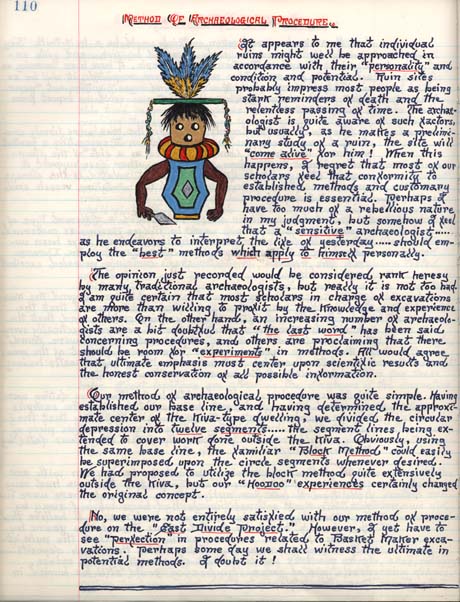 110
Method Of Archaeological Procedure.
It appears to me that individual
ruins might well be approached in
accordance with their "personality" and
condition and potential. Ruin sites
probably impress most people as being
stark reminders of death and the
relentless passing of time. The archae-
ologist is quite aware of such factors,
but usually, as he makes a prelimi-
nary study of a ruin, the site will
"come alive" for him! When this
happens, I regret that most of our
scholars feel that conformity to
established methods and customary
procedure is essential. Perhaps I
have too much of a rebellious nature
in my judgment, but somehow I feel
that a "sensitive" archaeologist.....
as he endeavors to interpret the life of yesterday..... should em-
ploy the "best" methods which apply to himself personally.
The opinion just recorded would be considered rank heresy
by many traditional archaeologists, but really it is not too bad.
I am quite certain that most scholars in charge of excavations
are more than willing to profit by the knowledge and experience
of others. On the other hand, an increasing number of archaeolo-
gists are a bit doubtful that "the last word" has been said
concerning procedures, and others are proclaiming that there
should be room for "experiments" in methods. All would agree
that ultimate emphasis must center upon scientific results and
the honest conservation of all possible information.
Our method of archaeological procedure was quite simple. Having
established our base line, and having determined the approxi-
mate center of the Kiva-type dwelling, we divided the circular
depression into twelve segments..... the segment lines being ex-
tended to cover work done outside the Kiva. Obviously, using
the same base line, the familiar "Block Method" could easily
be superimposed upon the circle segments whenever desired.
We had proposed to utilize the block method quite extensively
outside the Kiva, but our "Hoodoo" experiences certainly changed
the original concept.
No, we were not entirely satisfied with our method of proce-
dure on the "East Divide Project." However, I yet have to
see "perfection" in procedures related to Basket Maker exca-
vations. Perhaps some day we shall witness the ultimate in
potential methods. I doubt it!